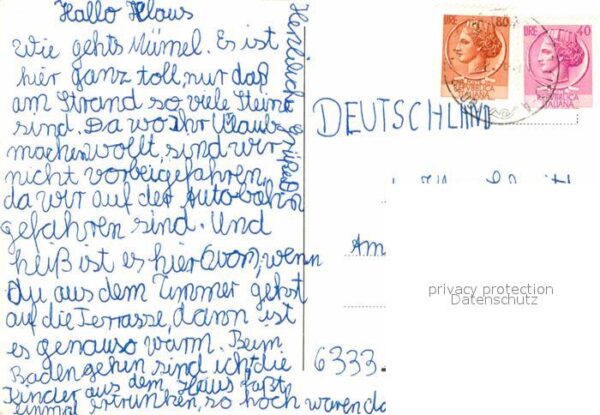 Hallo Klaus
Wie gehts Mümel. Es ist
hier ganz toll, nur daß
am Strand so viele Steine
sind. Da wo Ihr Urlaub
machen wollt, sind wir
nicht vorbeigefahren,
da wir auf der Autobahn
gefahren sind. Und
heiß ist es hier wenn
Du aus dem Zimmer gehst
auf die Terrasse, dann ist
es genauso warm. Beim
Baden gehen sind ich die
Kinder aus dem Haus fast
einmal ertrunken, so hoch waren da
Herzlich grüßen
LIRE 80
REPUBBLICA
ITALIANA
LIRE 40
REPUBBLICA
ITALIANA
DEUTSCHLAND
Am
6333
privacy protection
Datenschutz